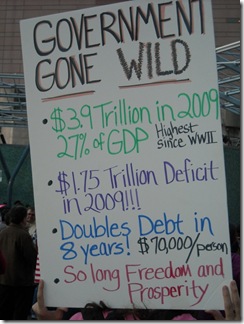 GOVERNMENT
GONE WILD
• $3.9 Trillion in 2009
27% of GDP Highest
since WWII
• $1.75 Trillion Deficit
in 2009!!!
• Doubles Debt in
8 years! $70,000/person
• So long Freedom and
Prosperity